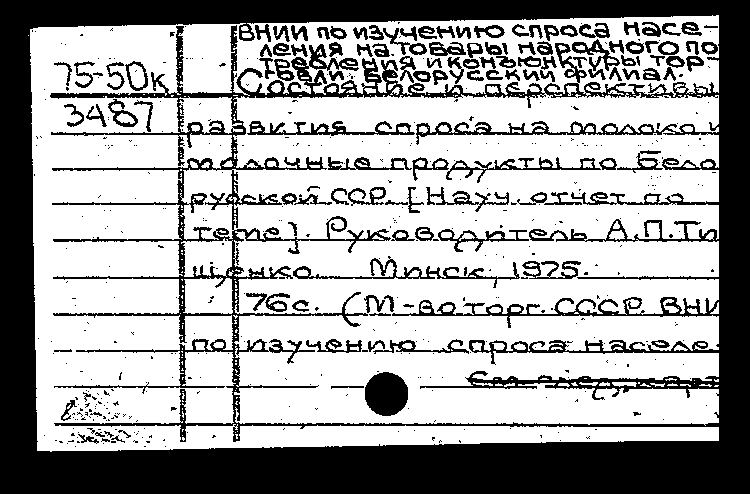 ВНИИ по изучению спроса насе-
ления на товары народного по
требления и конъюнктуры тор-
говли. Белорусский филиал.
75-50к
Состояние и перспективы
3487
развития спроса на молоко и
молочные продукты по Бело
русской ССР. [Науч. отчет по
теме]. Руководитель А.П.Ти
щенко. Минск, 1975.
76с. (М-во торг. СССР. ВНИ
по изучению спроса населе-